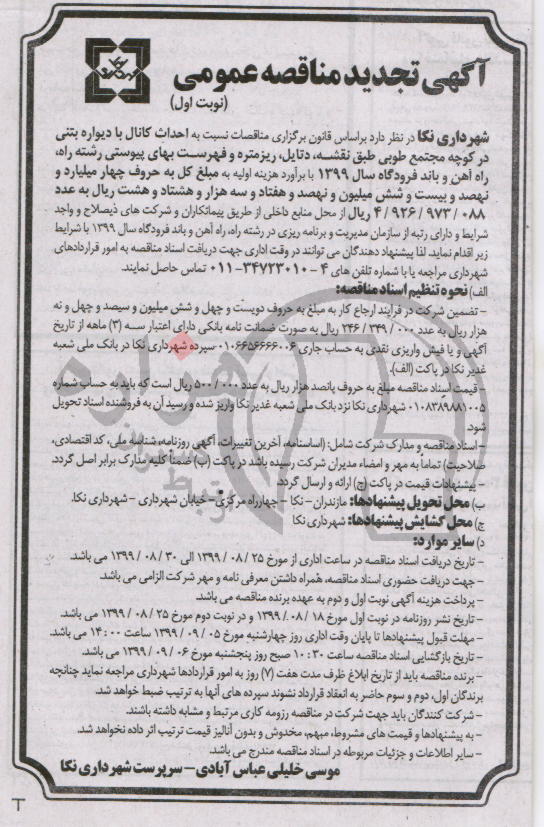 آگهی تجدید مناقصه عمومی
(نوبت اول)
شهرداری نکا در نظر دارد براساس قانون برگزاری مناقصات نسبت به احداث کانال با دیواره بتنی
در کوچه مجتمع طوبی طبق نقشه، دتایل، ریزمتره و فهرست بهای پیوستی رشته راه،
راه آهن و باند فرودگاه سال ۱۳۹۹ با برآورد هزینه اولیه به مبلغ کل به حروف چهار میلیارد و
نهصد و بیست و شش میلیون و نهصد و هفتاد و سه هزار و هشتاد و هشت ریال به عدد
۴/۹۲۶/۹۷۳/۰۸۸ ریال از محل منابع داخلی از طریق پیمانکاران و شرکت های ذیصلاح و واجد
شرایط و دارای رتبه از سازمان مدیریت و برنامه ریزی در رشته راه، راه آهن و باند فرودگاه سال ۱۳۹۹ با شرایط
زیر اقدام نماید. لذا پیشنهاد دهندگان می توانند در وقت اداری جهت دریافت اسناد مناقصه به امور قراردادهای
شهرداری مراجعه یا با شماره تلفن های ۴ - ۳۴۷۲۳۰۱۰-۰۱۱ تماس حاصل نمایند.
الف) نحوه تنظیم اسناد مناقصه:
- تضمین شرکت در فرآیند ارجاع کار به مبلغ به حروف دویست و چهل و شش میلیون و سیصد و چهل و نه
هزار ریال به عدد ۲۴۶/۳۴۹/۰۰۰ ریال به صورت ضمانت نامه بانکی دارای اعتبار سه (۳) ماهه از تاریخ
آگهی و یا فیش واریزی نقدی به حساب جاری ۰۱۰۶۶۵۶۶۶۶۰۰۶ سپرده شهرداری نکا در بانک ملی شعبه
غدیر نکا در پاکت (الف).
- قیمت اسناد مناقصه مبلغ به حروف پانصد هزار ریال به عدد ۵۰۰/۰۰۰ ریال است که باید به حساب شماره
۰۱۰۸۳۸۹۸۸۱۰۰۵ شهرداری نکا نزد بانک ملی شعبه غدیر نکا واریز شده و رسید آن به فروشنده اسناد تحویل
شود.
- اسناد مناقصه و مدارک شرکت شامل: (اساسنامه، آخرین تغییرات، آگهی روزنامه، شناسه ملی، کد اقتصادی،
صلاحیت) تماماً به مهر و امضاء مدیران شرکت رسیده باشد در پاکت (ب) ضمناً کلیه مدارک برابر اصل گردد.
- پیشنهادات قیمت در پاکت (ج) ارائه و ارسال گردد.
ب) محل تحویل پیشنهادها: مازندران - نکا - چهارراه مرکزی - خیابان شهرداری - شهرداری نکا.
ج) محل گشایش پیشنهادها: شهرداری نکا
د) سایر موارد:
- تاریخ دریافت اسناد مناقصه در ساعت اداری از مورخ ۲۵/۰۸/۱۳۹۹ الی ۳۰/۰۸/۱۳۹۹ می باشد.
- جهت دریافت حضوری اسناد مناقصه، همراه داشتن معرفی نامه و مهر شرکت الزامی می باشد.
- پرداخت هزینه آگهی نوبت اول و دوم به عهده برنده مناقصه می باشد.
- تاریخ نشر روزنامه در نوبت اول مورخ ۱۸/۰۸/۱۳۹۹ و در نوبت دوم مورخ ۲۵/۰۸/۱۳۹۹ می باشد.
- مهلت قبول پیشنهادها تا پایان وقت اداری روز چهارشنبه مورخ ۰۵/۰۹/۱۳۹۹ ساعت ۱۴:۰۰ می باشد.
- تاریخ بازگشایی اسناد مناقصه ساعت ۱۰:۳۰ صبح روز پنجشنبه مورخ ۰۶/۰۹/۱۳۹۹ می باشد.
- برنده مناقصه باید از تاریخ ابلاغ ظرف مدت هفت (۷) روز به امور قراردادها شهرداری مراجعه نماید چنانچه
برندگان اول، دوم و سوم حاضر به انعقاد قرارداد نشوند سپرده های آنها به ترتیب ضبط خواهد شد.
- شرکت کنندگان باید جهت شرکت در مناقصه رزومه کاری مرتبط و مشابه داشته باشند.
- به پیشنهادها و قیمت های مشروط، مبهم، مخدوش و بدون آنالیز قیمت ترتیب اثر داده نخواهد شد.
- سایر اطلاعات و جزئیات مربوطه در اسناد مناقصه مندرج می باشد.
موسی خلیلی عباس آبادی - سرپرست شهرداری نکا